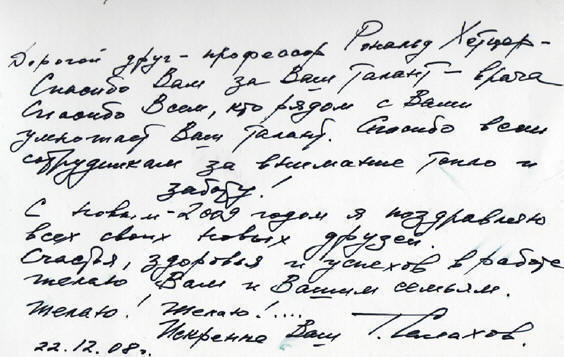 Дорогой друг - профессор Рональд Хетцер -
Спасибо Вам за Ваш талант - врача
Спасибо Всем, кто рядом с Вами
умножает Ваш талант. Спасибо всем
сотрудникам за внимание тепло и
заботу!
С новым - 2009 годом я поздравляю
всех своих новых друзей.
Счастья, здоровья и успехов в работе
желаю Вам и Вашим семьям.
Желаю! Желаю!....
Искренне Ваш Т.
22.12.08г.